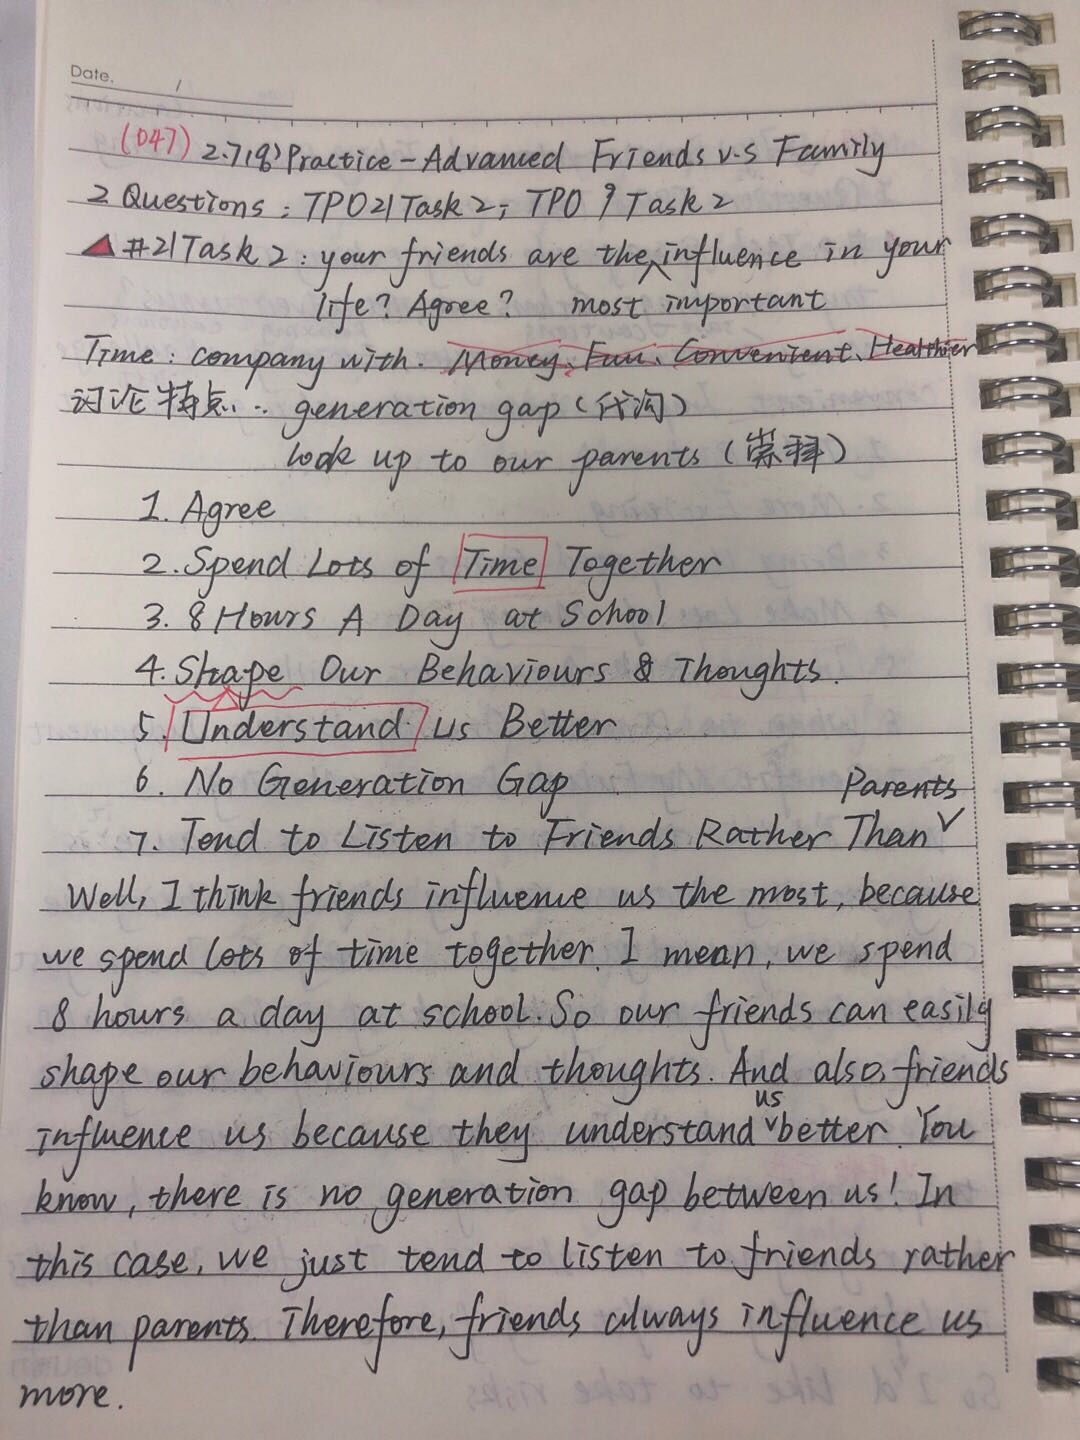 Date.
(047) 2.7(8) Practice - Advanced Friends v.s Family
2 Questions : TPO21 Task 2; TPO 9 Task 2
#21 Task 2 : your friends are the influence in your
life? Agree? most important
Time : company with. Money、Fun、Convenient、Healthier
讨论特点:. generation gap (代沟)
look up to our parents (崇拜)
1. Agree
2. Spend Lots of Time Together
3. 8 Hours A Day at School
4. Shape Our Behaviours & Thoughts.
5. Understand us Better
6. No Generation Gap
Parents
7. Tend to Listen to Friends Rather Than
Well, I think friends influence us the most, because
we spend lots of time together. I mean, we spend
8 hours a day at school. So our friends can easily
shape our behaviours and thoughts. And also, friends
us
influence us because they understand better. You
know, there is no generation gap between us! In
this case, we just tend to listen to friends rather
than parents. Therefore, friends always influence us
more.